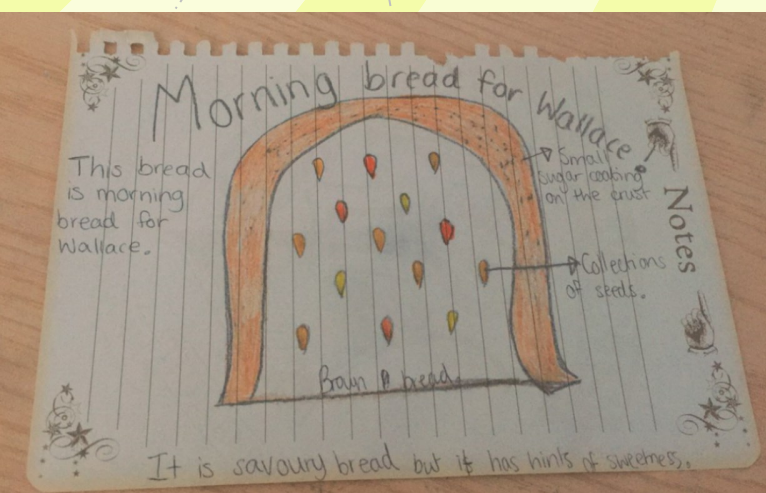 Morning bread for Wallace.
This bread
is morning
bread for
Wallace.
Small
sugar coating
on the crust
Notes
Collections
of seeds.
bread
It is savoury bread but it has hints of sweetness.